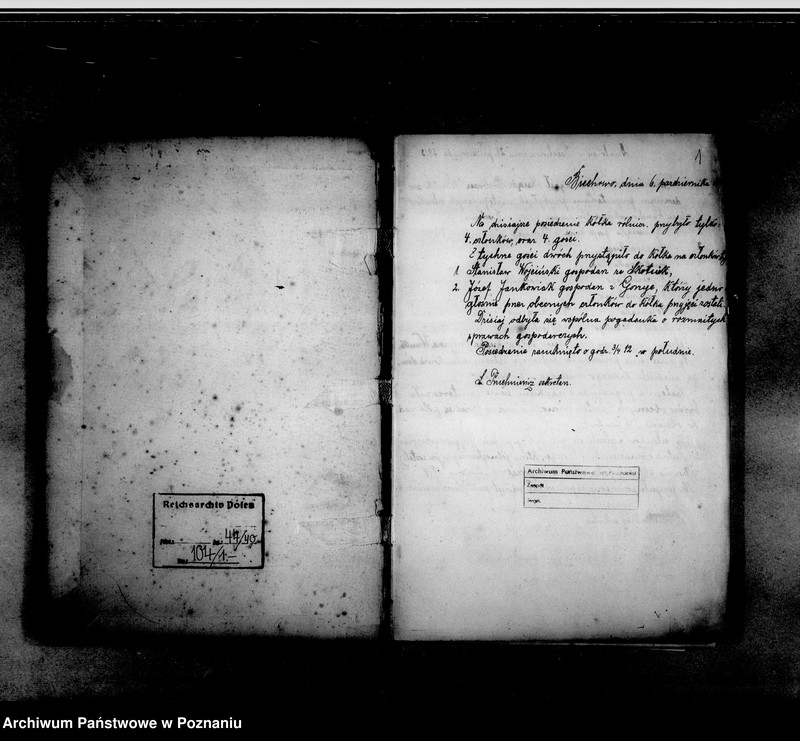 Reichsarchiv Posen
47/40.
104/1.-
1
Biechowo, dnia 6. pazdziernika
Na dzisiajne posiedzenie Kółka rolnicz. przybyło tylko
4. członków, oraz 4. gości.
Z tychże gości dwóch przystąpiło do Kółka na członków
1. Stanisław gospodarz ze
2. Józef Jankowiak gospodarz z który jedno
głośnie przez obecnych członków do Kółka przyjęci zostali.
Dzisiaj odbyła się wspólna pogadanka o rozmaitych
sprawach gospodarczych.
Posiedzenie zamknięto o godz. 3/4 12 w południe.
sekretarz.
Archiwum Państwowe
Zespół
sygn.
Archiwum Państwowe w Poznaniu